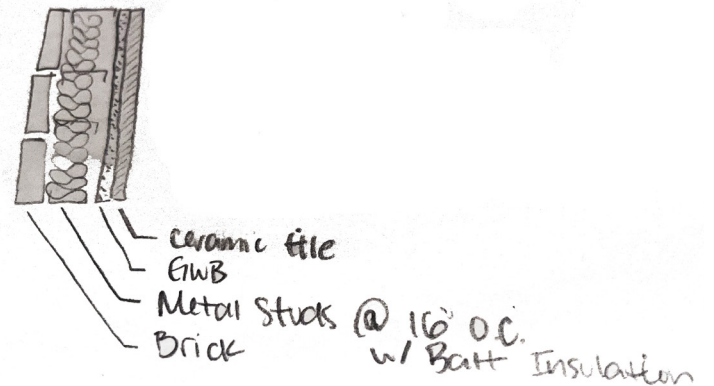 ceramic tile
GWB
Metal Studs @ 16" O.C.
w/ Batt Insulation
Brick